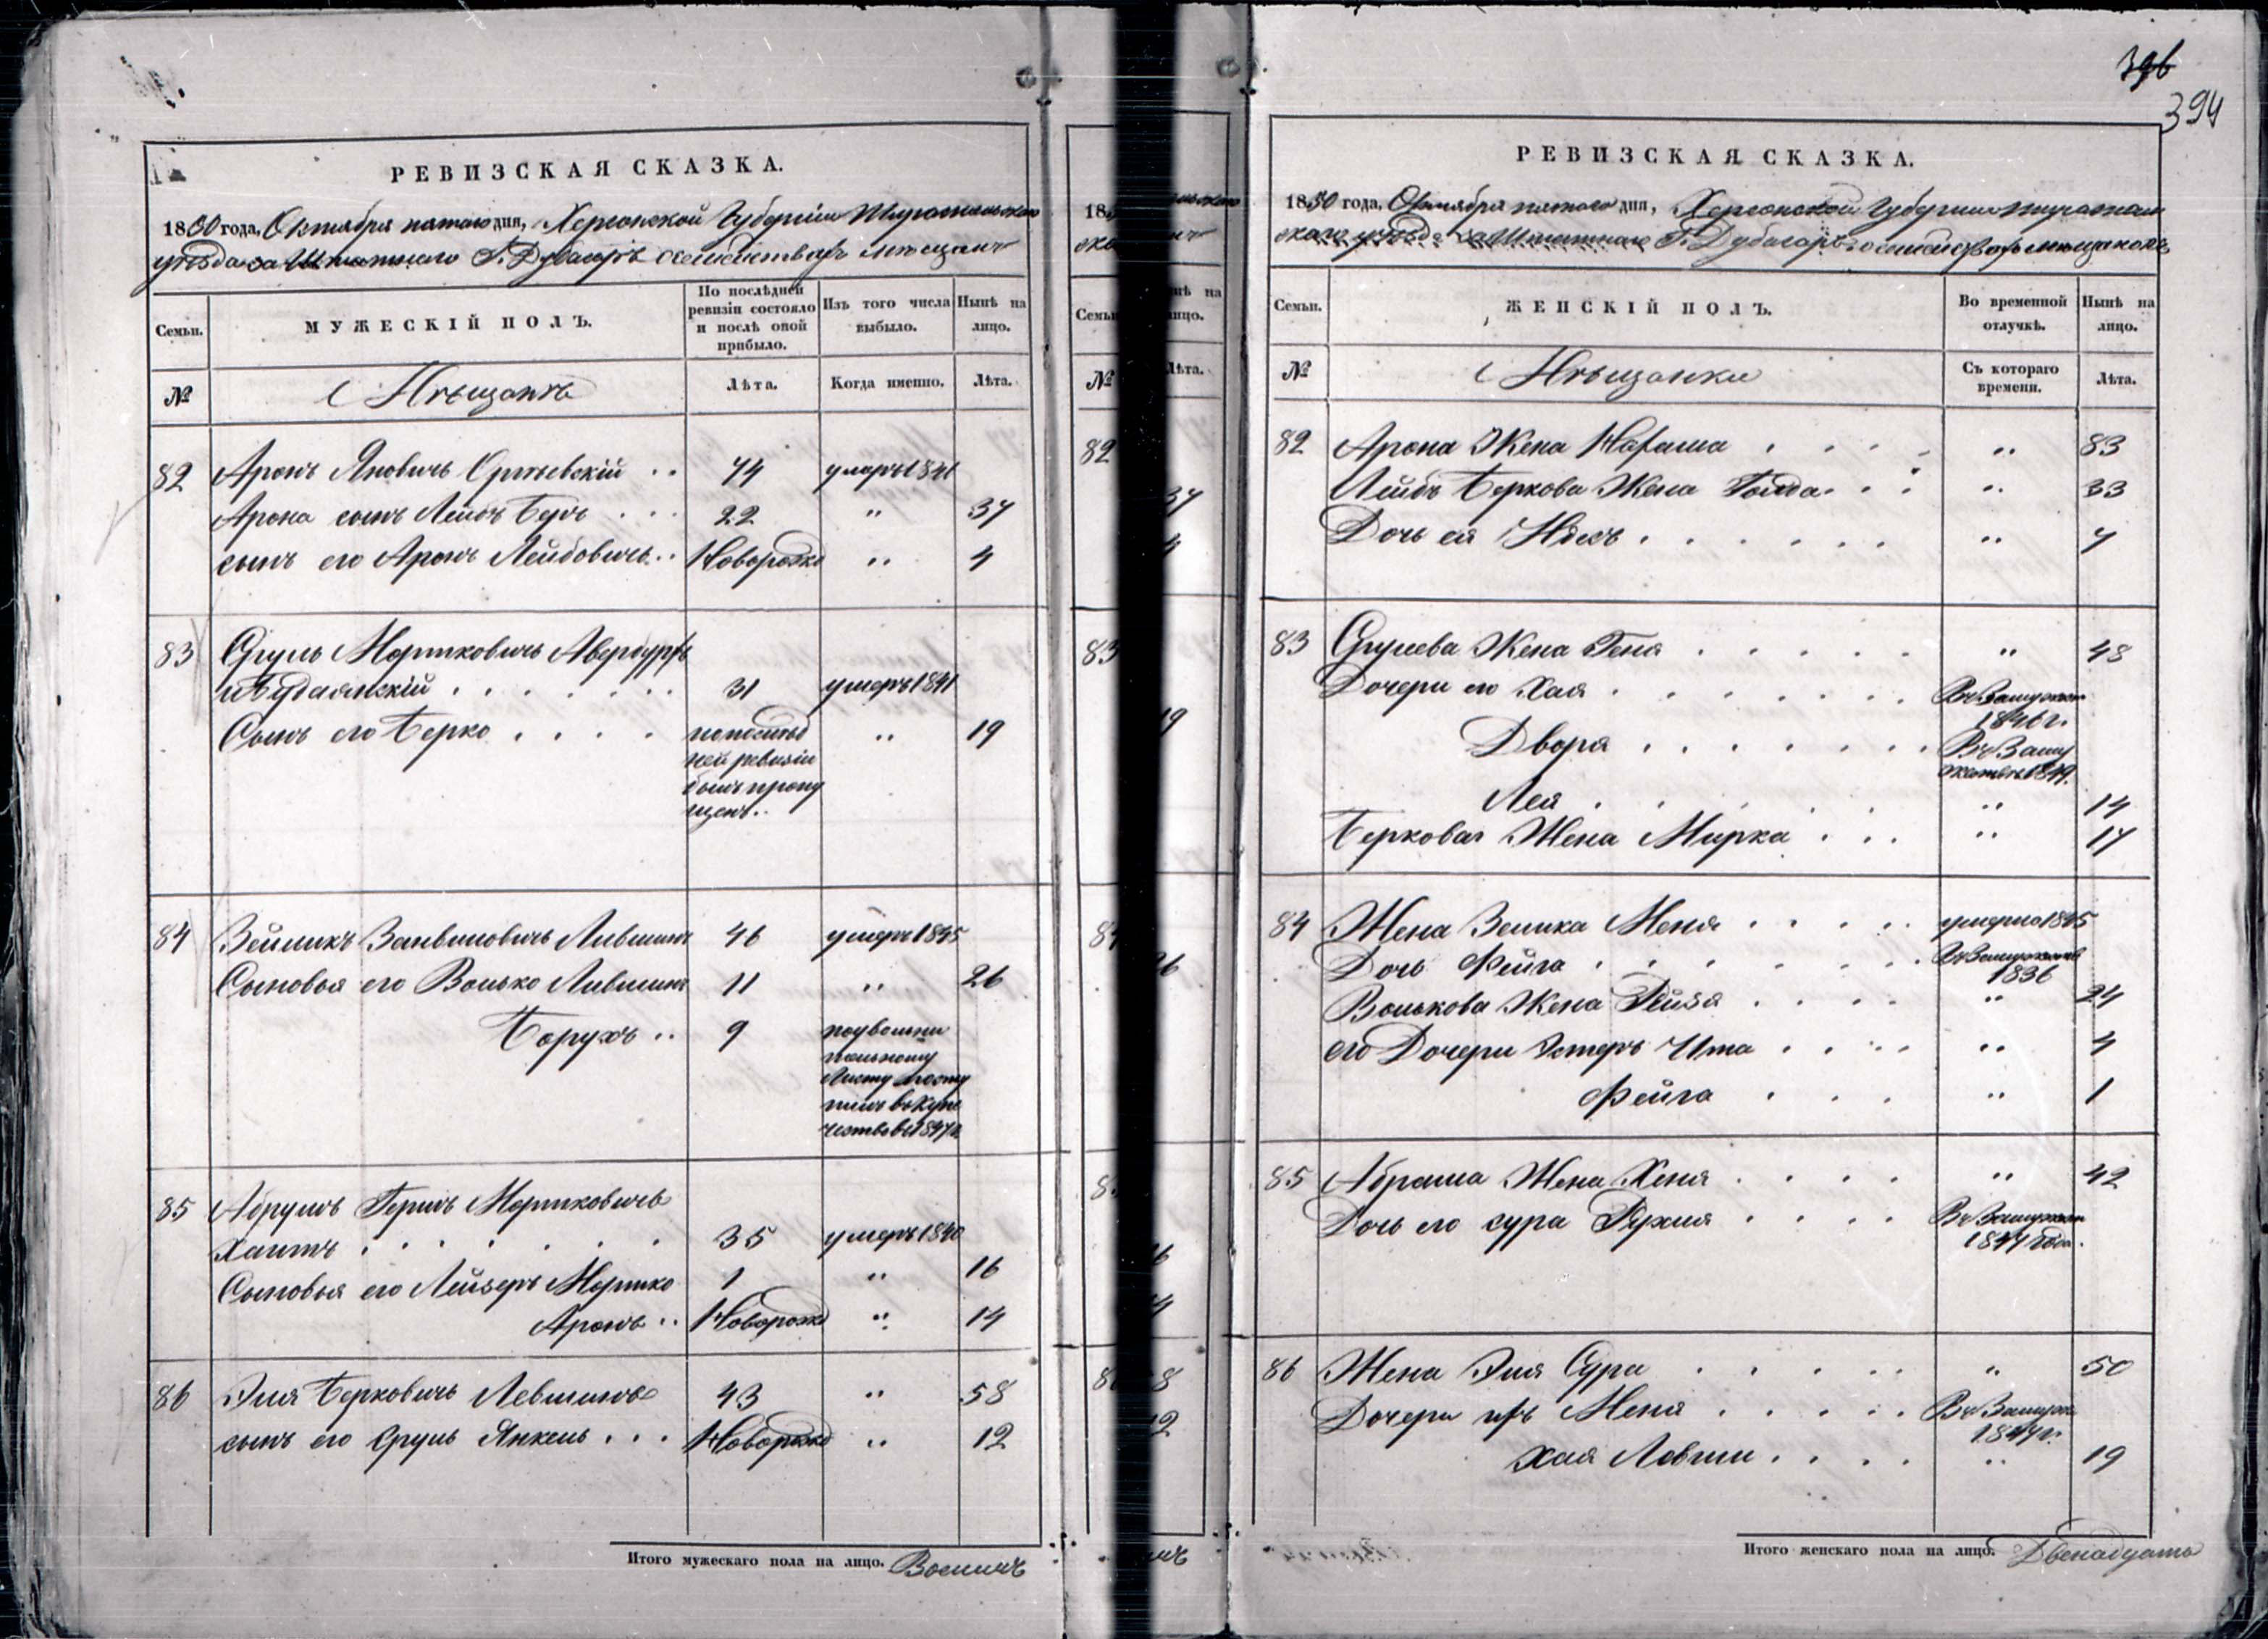 РЕВИЗСКАЯ СКАЗКА.
1850 года, Октября пятого дня, Херсонской Губернии Тираспольского
уезда заштатного Г. Дубасаръ о семействахъ мещанъ
Семьи.
МУЖЕСКІЙ ПОЛЪ.
По последней ревизіи состояло и после оной прибыло.
Изъ того числа выбыло.
Ныне на лицо.
№
Мещанъ
Лета.
Когда именно.
Лета.
82 Аронъ Яновичъ 74 умеръ 1841
Арона сынъ Лейбъ Беръ 22 " 37
сынъ его Аронъ Лейбовичъ Новорожд " 4
83 Сруль Мортковичъ Авербурхъ
31 умеръ 1841
Сынъ его Берко " 19
по послед
ней ревизіи
былъ пропу
щенъ
84 Зейликъ Занвиловичъ Лившинъ 46 умеръ 1845
Сыновья его Волько Лившинъ 11 " 26
Борухъ 9
листу посту
пилъ въ купе
чество въ
85 Абрумъ Гершъ Мортковичъ
Хаитъ 35 умеръ 1840
Сыновья его Лейзеръ Мортко 1 " 16
Аронъ Новорожд " 14
86 Эля Берковичъ Левшинъ 43 " 58
сынъ его Сруль Янкель Новорожд " 12
Итого мужескаго пола на лицо. Восемь
396
394
РЕВИЗСКАЯ СКАЗКА.
1850 года, Октября пятого дня, Херсонской Губернии Тираспол
ского уезда заштатного Г. Дубасаръ о семействахъ мещанокъ
Семьи.
ЖЕНСКІЙ ПОЛЪ.
Во временной отлучкѣ.
Нынѣ на лицо.
№
Мещанки
Съ котораго времени.
Лѣта.
82 Арона Жена " 83
Лейбъ Беркова Жена Голда " 33
Дочь ея " 7
83 Срулева Жена Геня " 48
Дочери его Хая Въ Замужест 1846 г.
Двора Въ Заму жестве 1849.
Лея " 14
Беркова Жена Мирка " 17
84 Жена Зелика Меня умерла 1845
Дочь Фейга Въ Замужестве 1836
Волькова Жена Рейзя " 24
его Дочери Эстеръ Ита " 4
Фейга " 1
85 Абрама Жена Хеня " 42
Дочь его сура Рухля Въ Замужест 1847 года.
86 Жена Эля Сура " 50
Дочери ихъ Меня Въ Замуж 1847 г.
Хая " 19
Итого женскаго пола на лицо. Двенадцать